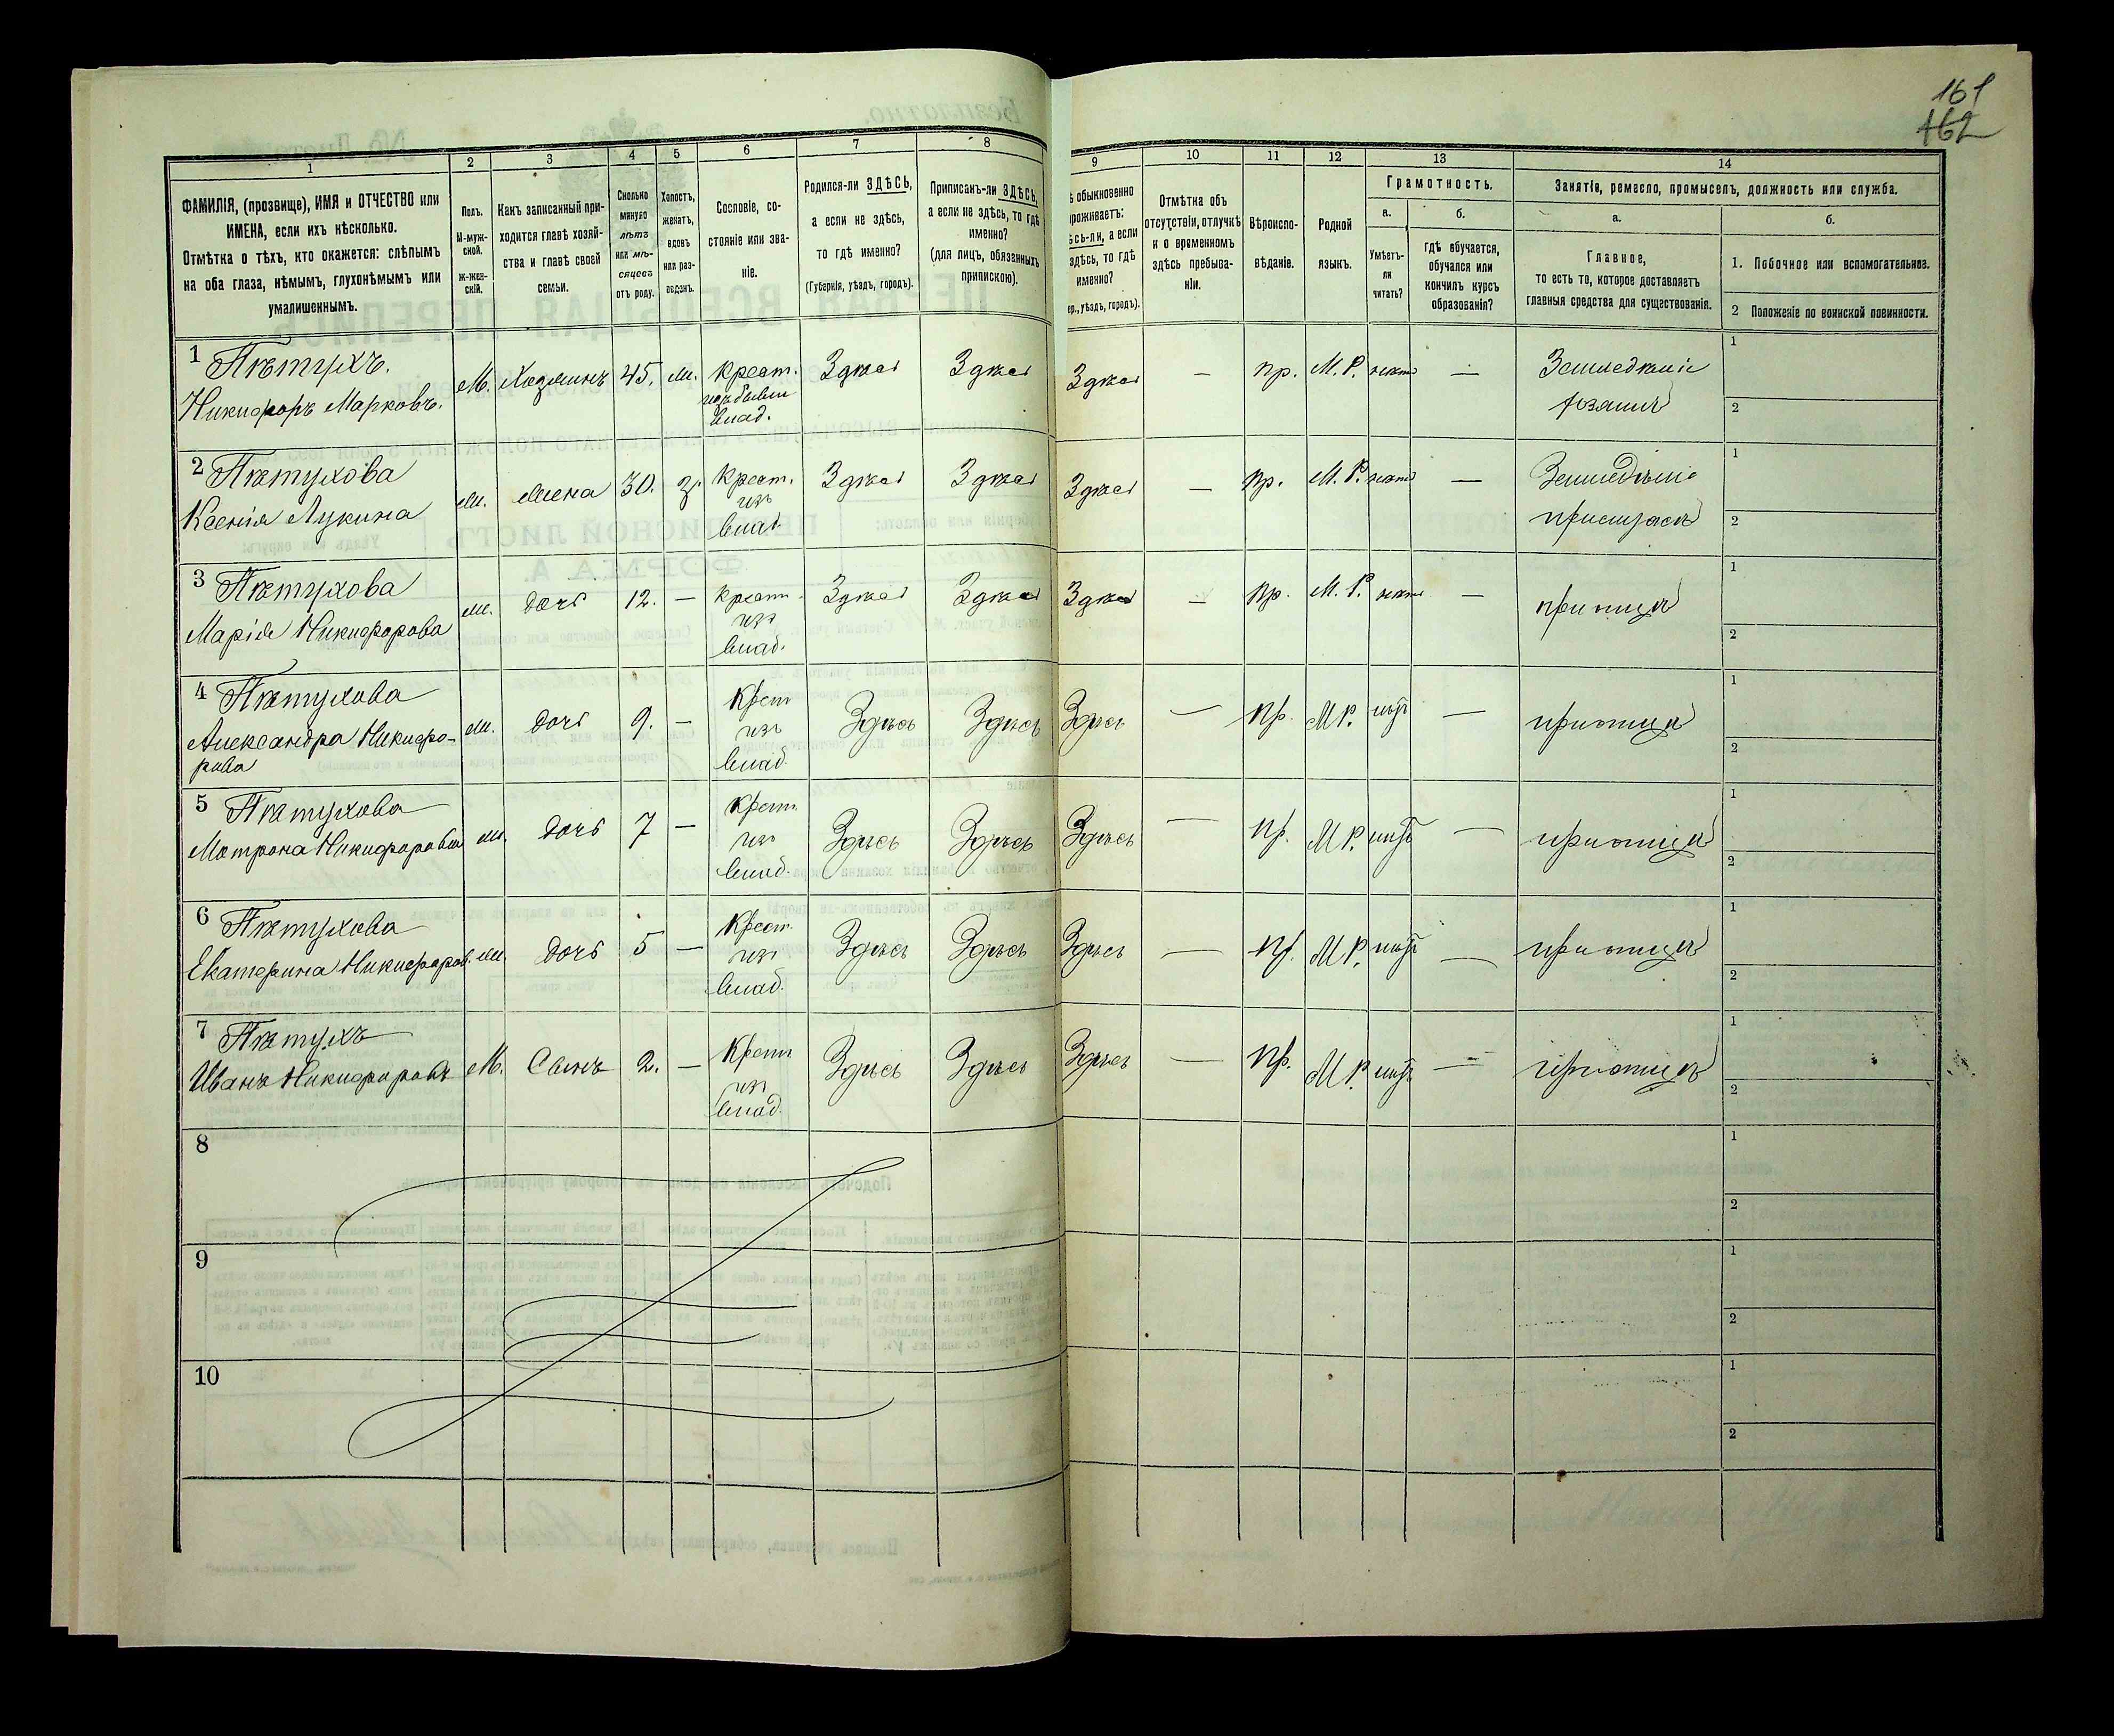 161
162
1 2 3 4 5 6 7 8 9 10 11 12 13 14
ФАМИЛІЯ, (прозвище), ИМЯ и ОТЧЕСТВО или
ИМЕНА, если ихъ нѣсколько.
Отмѣтка о тѣхъ, кто окажется: слѣпымъ
на оба глаза, нѣмымъ, глухонѣмымъ или
умалишеннымъ.
Полъ.
М-муж-
ской.
Ж-жен-
скій.
Какъ записанный при-
ходится главѣ хозяй-
ства и главѣ своей
семьи.
Сколько
минуло
лѣтъ
или мѣ-
сяцевъ
отъ роду.
Холостъ,
женатъ,
вдовъ
или раз-
веденъ.
Сословіе, со-
стояніе или зва-
ніе.
Родился-ли ЗДѢСЬ,
а если не здѣсь,
то гдѣ именно?
(Губернія, уѣздъ, городъ).
Приписанъ-ли ЗДѢСЬ,
а если не здѣсь, то гдѣ
именно?
(для лицъ, обязанныхъ
припискою).
обыкновенно
проживаетъ:
здѣсь-ли, а если
здѣсь, то гдѣ
именно?
уѣздъ, городъ).
Отмѣтка объ
отсутствіи, отлучкѣ
и о временномъ
здѣсь пребыва-
ніи.
Вѣроиспо-
вѣданіе.
Родной
языкъ.
Грамотность.
а. б.
Умѣетъ-
ли
читать?
гдѣ обучается,
обучался или
кончилъ курсъ
образованія?
Занятіе, ремесло, промыселъ, должность или служба.
а. б.
Главное,
то есть то, которое доставляетъ
главныя средства для существованія.
1. Побочное или вспомогательное.
2 Положеніе по воинской повинности.
1 Пѣтухъ. М. Хозяинъ 45. ж. Крест. Здѣсь Здѣсь Здѣсь — пр. М. Р. — Земледѣліе 1
Никифоръ Марковъ. изъ бывш хозяинъ 2
влад.
2 Пѣтухова ж. Жена 30. з. Крест. Здѣсь Здѣсь Здѣсь — пр. М. Р. — Земледѣліе 1
Ксенія Лукина изъ 2
влад.
3 Пѣтухова ж. Дочь 12. — Крест. Здѣсь Здѣсь Здѣсь — пр. М. Р. — при отцѣ 1
Марія Никифорова изъ 2
влад.
4 Пѣтухова ж. дочь 9. — Крест Здѣсь Здѣсь Здѣсь — пр. М Р. нѣтъ — при отцѣ 1
Александра Никифо- изъ 2
рова влад.
5 Пѣтухова ж. дочь 7 — Крест Здѣсь Здѣсь Здѣсь — пр. М Р. нѣтъ — при отцѣ 1
Мотрона Никифорова изъ 2
влад.
6 Пѣтухова ж. дочь 5 — Крест. Здѣсь Здѣсь Здѣсь — пр. М Р. нѣтъ — при отцѣ 1
Екатерина Никифоров. изъ 2
влад.
7 Пѣтухъ М. Сынъ 2. — Крест Здѣсь Здѣсь Здѣсь — пр. М Р. нѣтъ — при отцѣ 1
Иванъ Никифоровъ изъ 2
влад.
8 1
2
9 1
2
10 1
2